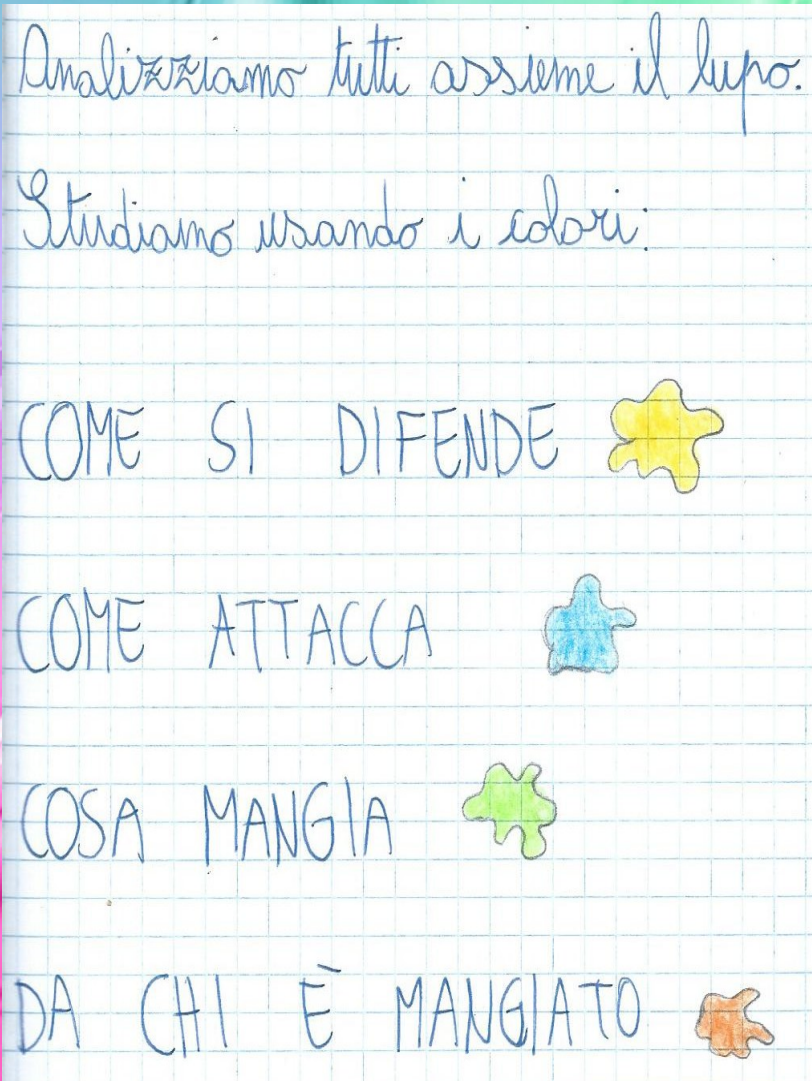 Analizziamo tutti assieme il lupo.
Studiamo usando i colori:
COME SI DIFENDE
COME ATTACCA
COSA MANGIA
DA CHI È MANGIATO